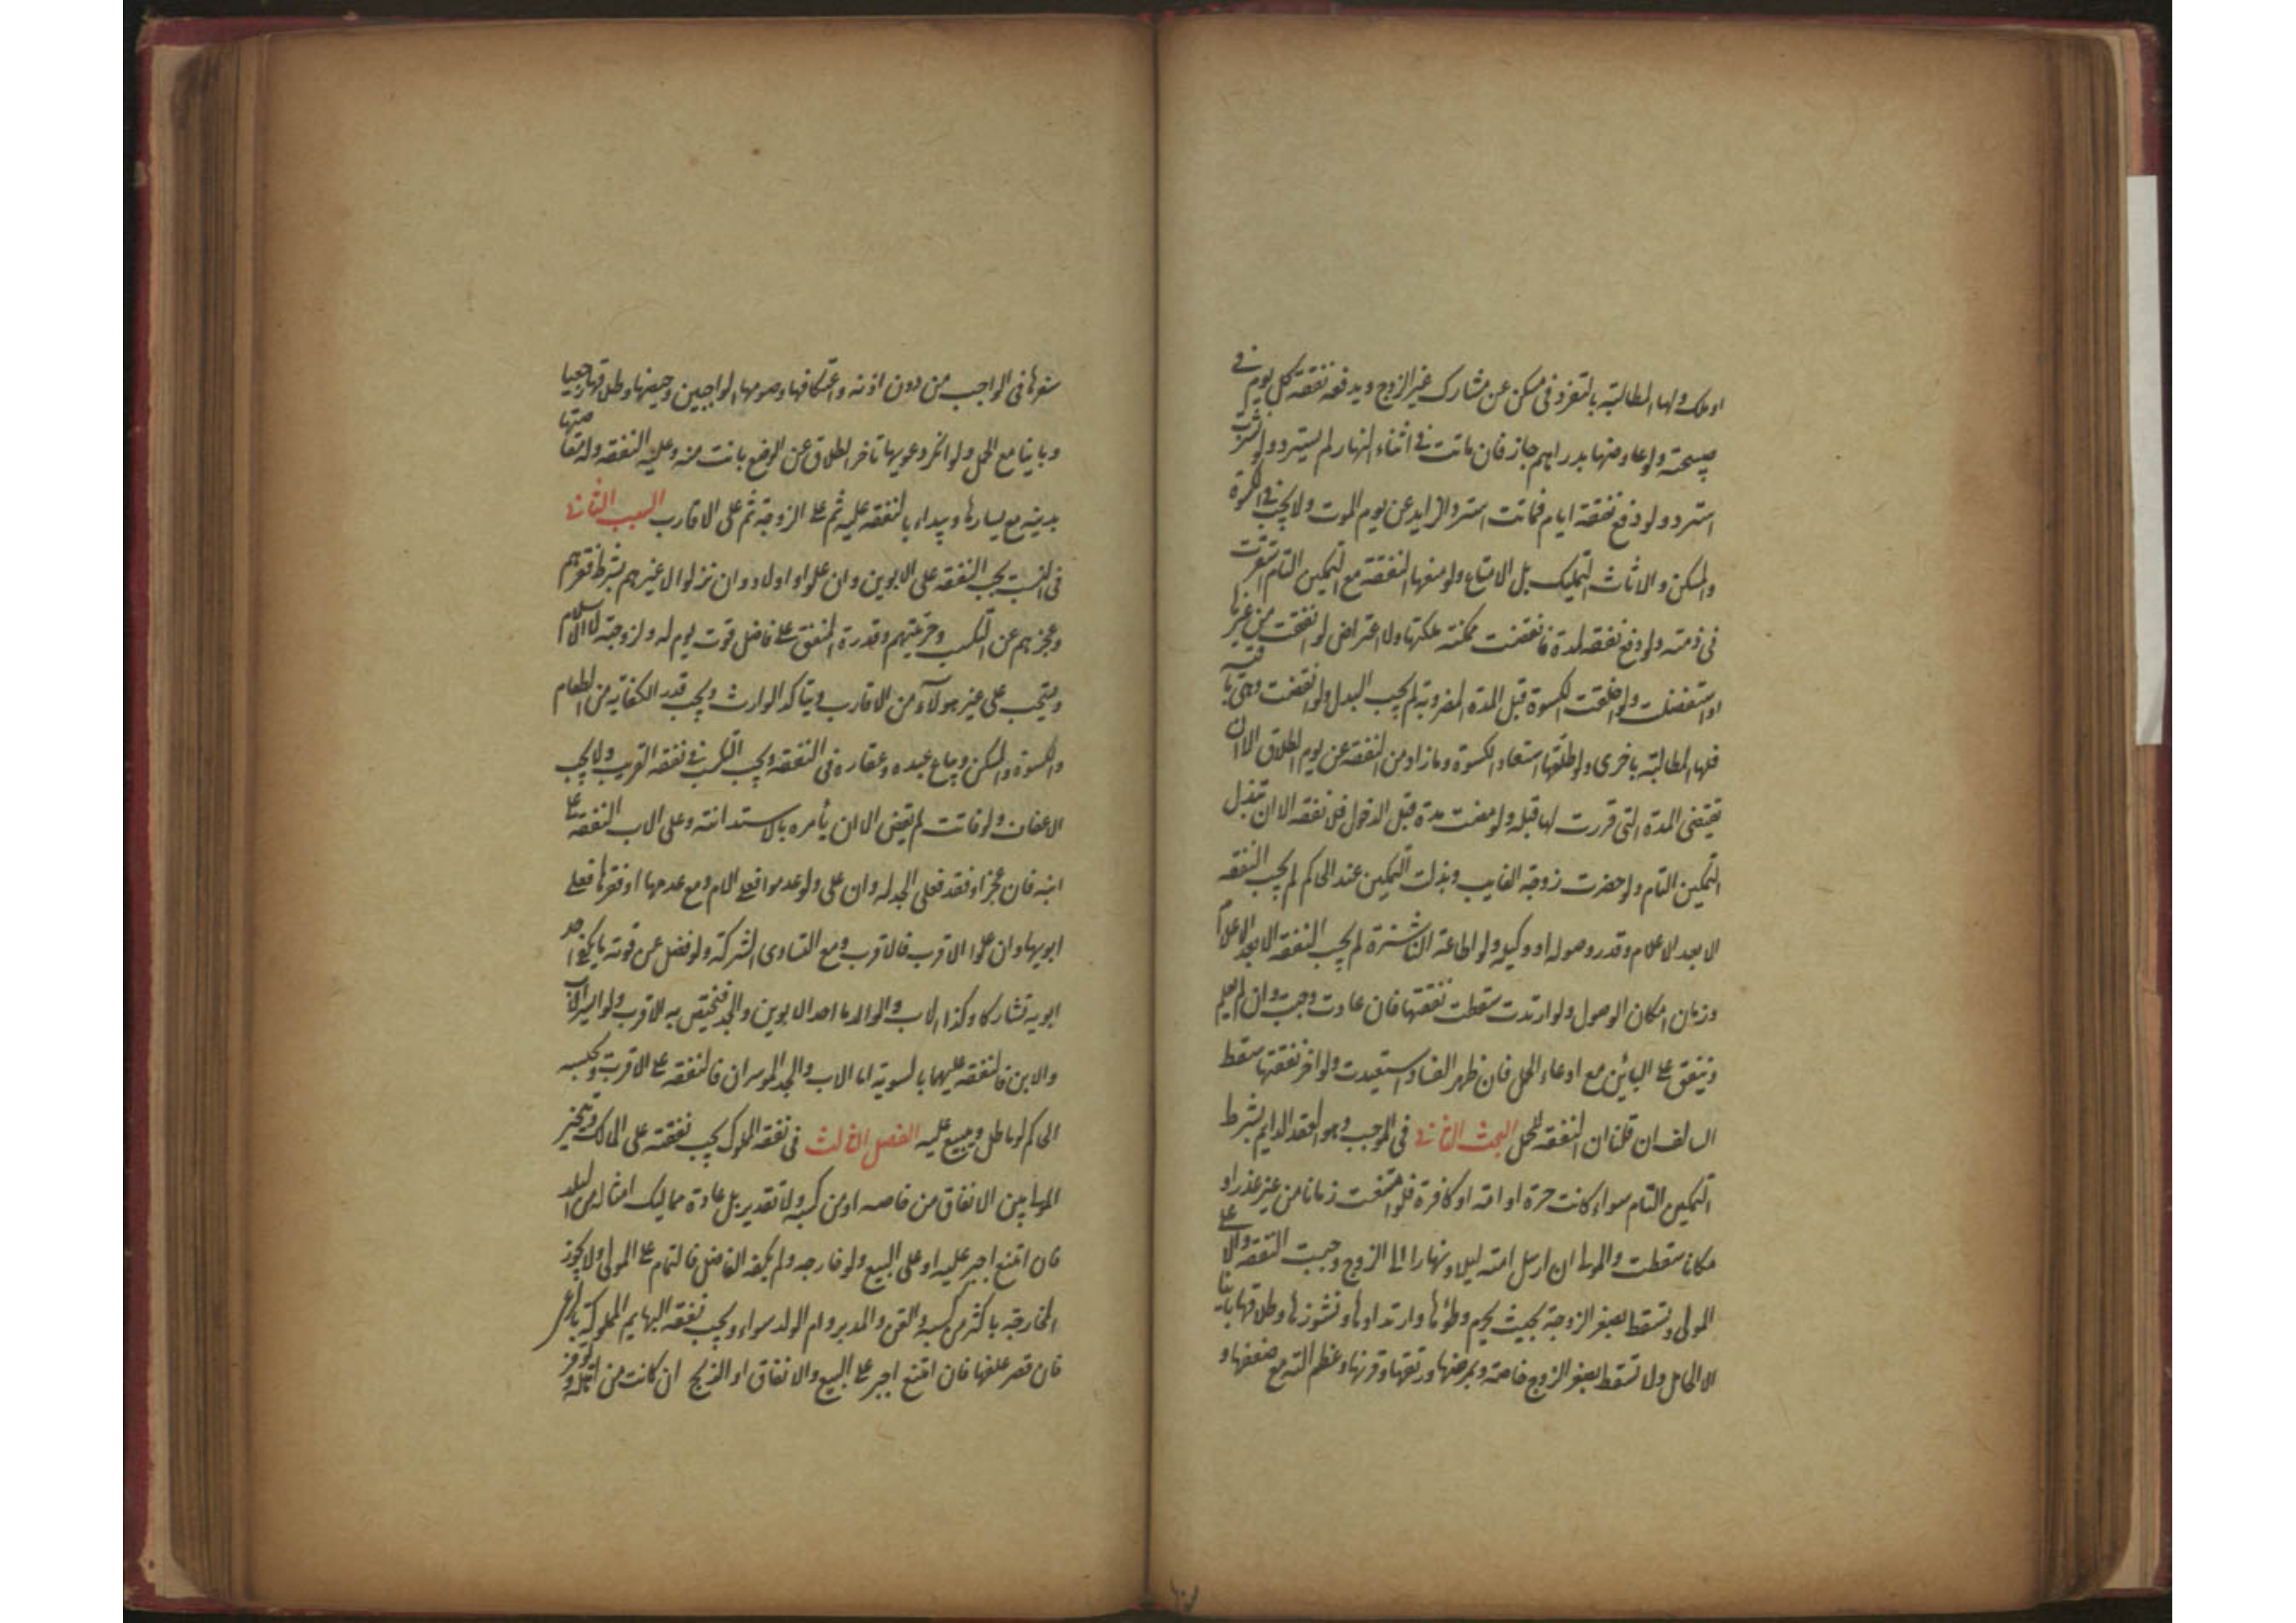 او ملك ولها المطالبة بالتفرد فى مسكن عن مشارك غير الزوج ويدفعه نفقة كل يوم فى
صبيحته ولو عاوضها بدراهم جاز فان ماتت فى اثناء النهار لم يسترد ولو نشزت
استرد ولو دفع نفقة ايام فماتت استرد الزايد عن يوم الموت ولا يجب فى الكسوة
والمسكن والاثاث التمليك بل الامتاع ولو منعها النفقة مع التمكين التام استقرت
فى ذمته ولو دفع نفقه لمدة فانقضت ممكنة ملكتها ولا اعتراض لو انفقت من غيرها
او استفضلت ولو اخلقت الكسوة قبل المدة المضروبة لم يجب البدل ولو انقضت وهى باقية
فلها المطالبة باخرى ولو طلقها استعاد الكسوة وما زاد من النفقة عن يوم الطلاق الا ان
تقتضى المدة التى قررت لها قبله ولو مضت مدة قبل الدخول فلا نفقه الا ان تبذل
التمكين التام ولو حضرت زوجة الغايب وبذلت التمكين عند الحاكم لم يجب النفقه
الا بعد الاعلام وقدر وصوله او وكيله ولو اطاعته الناشزة لم يجب النفقه الا بعد الاعلام
وزمان امكان الوصول ولو ارتدت سقطت نفقتها فان عادت وجبت وان لم يعلم
وينفق على البائن مع ادعاء الحمل فان ظهر الفساد استعيدت ولو اخر نفقتها سقط
السالف ان قلنا ان النفقه للحمل البحث الثانى فى الموجب وهو العقد الدايم بشرط
التمكين التام سواء كانت حرة او امة او كافرة فلو امتنعت زمانا من غير عذر او
مكانا سقطت والمولى ان ارسل امته ليلا ونهارا الى الزوج وجبت النفقه والا على
المولى وتسقط بصغر الزوجة بحيث يحرم وطؤها وارتدادها ونشوزها وطلاقها باينا
الا الحامل ولا تسقط بصغر الزوج خاصة وبمرضها ورتقها وقرنها وعظم آلته مع ضعفها و
سفرها فى الواجب من دون اذنه واعتكافها وصومها الواجبين وحيضها وطلاقها رجعيا
وباينا مع الحمل ولو انكر دعويها تاخر الطلاق عن الوضع بانت منه وعليه النفقه وله مقاصتها
بدينه مع يسارها ويبداء بالنفقه عليه ثم على الزوجة ثم على الاقارب السبب الثانى
فى النسب يجب النفقه على الابوين وان علوا والاولاد وان نزلوا لا غيرهم بشرط فقرهم
وعجزهم عن التكسب وحريتهم وقدرة المنفق على فاضل قوت يوم له ولزوجته لا الاسلام
ويستحب على غير هولآء من الاقارب ويتاكد الوارث ويجب قدر الكفاية من الطعام
والكسوة والمسكن ويباع عبده وعقاره فى النفقه ويجب التكسب فى نفقه القريب ولا يجب
الاعفاف ولو فاتت لم تقض الا ان يأمره بالاستدانة وعلى الاب النفقه على
ابنه فان عجز او فقد فعلى الجد له وان على ولو عدموا فعلى الام ومع عدمها او فقرها فعلى
ابويها وان علوا الاقرب فالاقرب ومع التساوى الشركة ولو فضل عن قوته ما يكفى احد
ابويه تشاركا وكذا الاب والولد اما احد الابوين والجد فيختص به الاقرب ولو ايسر الاب
والابن فالنفقه عليهما بالسوية اما الاب والجد الموسران فالنفقه على الاقرب ويحبسه
الحاكم لو ماطل ويبيع عليه الفصل الثالث فى نفقه المملوك يجب نفقته على المالك ويتخير
المولى بين الانفاق من خاصه او من كسبه ولا تقدير بل عادة مماليك امثاله من البلد
فان امتنع اجبر عليه او على البيع ولو خارجه ولم يكفه الفاضل فالتمام على المولى ولا يجوز
المخارجه باكثر من كسبه والقن والمدبر وام الولد سواء ويجب نفقه البهايم المملوكة بالمرعى
فان قصر علفها فان امتنع اجبر على البيع والانفاق او الذبح ان كانت من